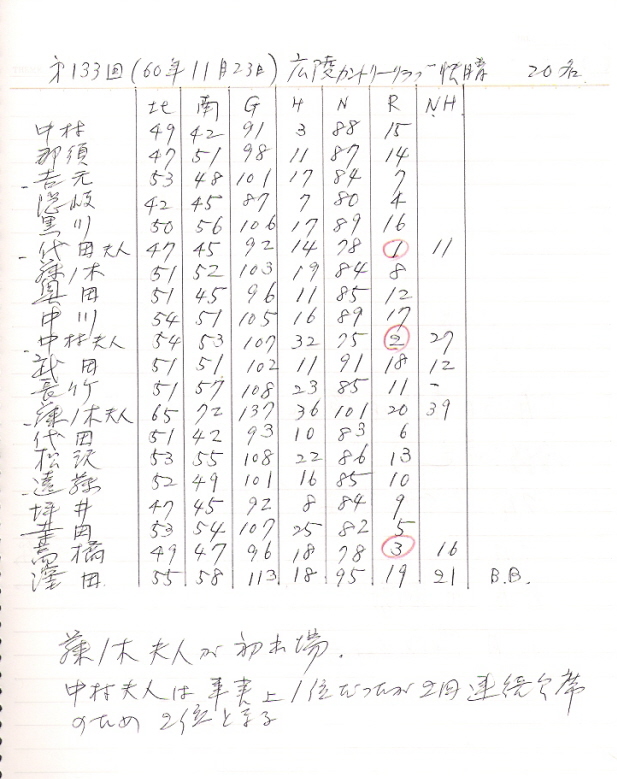 第133回(60年11月23日) 広陵カントリークラブ 快晴 20名
北 南 G H N R NH
中村 49 42 91 3 88 15
那須 47 51 98 11 87 14
吉元 53 48 101 17 84 7
隠岐 42 45 87 7 80 4
黒川 50 56 106 17 89 16
代田夫人 47 45 92 14 78 1 11
藤ノ木 51 52 103 19 84 8
真田 51 45 96 11 85 12
中川 54 51 105 16 89 17
中村夫人 54 53 107 32 75 2 27
武田 51 51 102 11 91 18 12
長竹 51 57 108 23 85 11 -
藤ノ木夫人 65 72 137 36 101 20 39
代田 51 42 93 10 83 6
松沢 53 55 108 22 86 13
遠藤 52 49 101 16 85 10
坪井 47 45 92 8 84 9
田 53 54 107 25 82 5
高橋 49 47 96 18 78 3 16
澤田 55 58 113 18 95 19 21 B.B.
藤ノ木夫人が初出場.
中村夫人は事実上1位だったが2回連続欠席
のため 2位となる